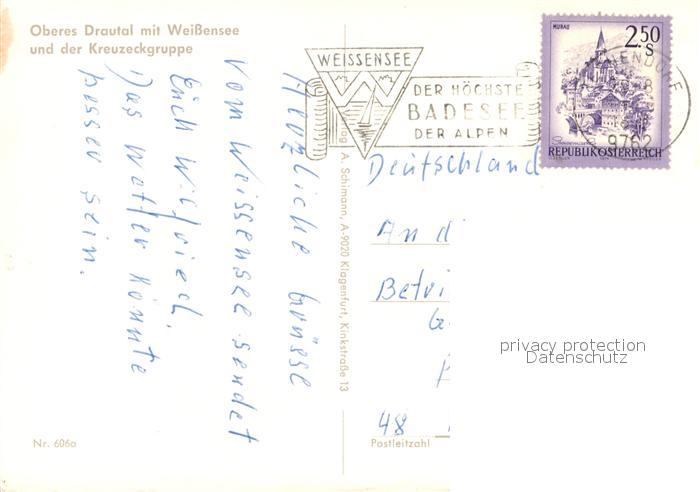 Oberes Drautal mit Weißensee
und der Kreuzeckgruppe
WEISSENSEE
DER HÖCHSTE
BADESEE
DER ALPEN
9762
MURAU
2.50
S
REPUBLIK ÖSTERREICH
Herzliche Grüsse
vom Weissensee sendet
Euch Wilfried.
Das Wetter könnte
besser sein.
Verlag A. Schimann, A-9020 Klagenfurt, Kinkstraße 13
Deutschland
An di
Betri
48
Postleitzahl
Nr. 606a
privacy protection
Datenschutz